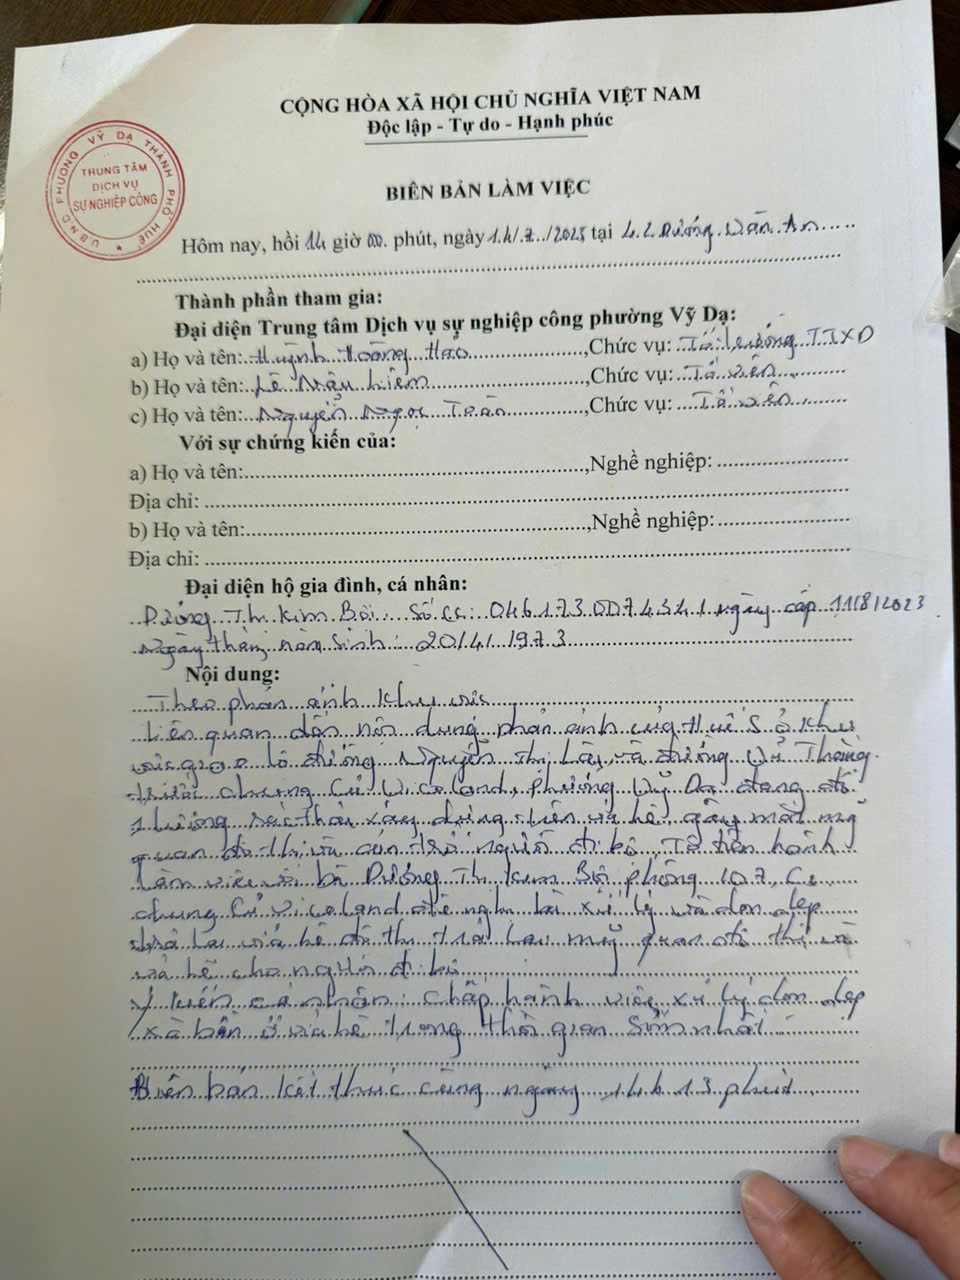 CỘNG HÒA XÃ HỘI CHỦ NGHĨA VIỆT NAM
Độc lập - Tự do - Hạnh phúc
U.B.N.D PHƯỜNG VỸ DẠ THÀNH PHỐ HUẾ
TRUNG TÂM
DỊCH VỤ
SỰ NGHIỆP CÔNG
BIÊN BẢN LÀM VIỆC
Hôm nay, hồi 14 giờ 00 phút, ngày 14/ /2025 tại Dương Văn An
Thành phần tham gia:
Đại diện Trung tâm Dịch vụ sự nghiệp công phường Vỹ Dạ:
a) Họ và tên: Huỳnh Hoàng Hảo, Chức vụ: Tổ trưởng TTXD
b) Họ và tên: Lê Liêm, Chức vụ: Tổ viên
c) Họ và tên: Nguyễn Ngọc Trân, Chức vụ: Tổ viên
Với sự chứng kiến của:
a) Họ và tên:, Nghề nghiệp:
Địa chỉ:
b) Họ và tên:, Nghề nghiệp:
Địa chỉ:
Đại diện hộ gia đình, cá nhân:
Dương Thị Kim Bôi. Số CC: 046173007434 ngày cấp 11/8/2023
Ngày tháng năm sinh: 20/4/1973
Nội dung:
Theo phản ánh khu vực
liên quan đến nội dung phản ánh của Huế S ở khu
vực giao lộ đường Nguyễn Thị Lài và đường Vũ Thắng
trước chung cư Vicoland, phường Vỹ Dạ đang đổ
1 lượng rác thải xây dựng trên vỉa hè gây mất mỹ
quan đô thị và cản trở người đi bộ. Tổ tiến hành
làm việc với bà Dương Thị Kim Bôi phòng 107,
chung cư Vicoland đề nghị bà xử lý và dọn dẹp
trả lại vỉa hè đô thị trả lại mỹ quan đô thị và
vỉa hè cho người đi bộ
Ý kiến cá nhân: chấp hành việc xử lý dọn dẹp
xà bần ở vỉa hè trong thời gian sớm nhất
Biên bản kết thúc cùng ngày 14h13 phút